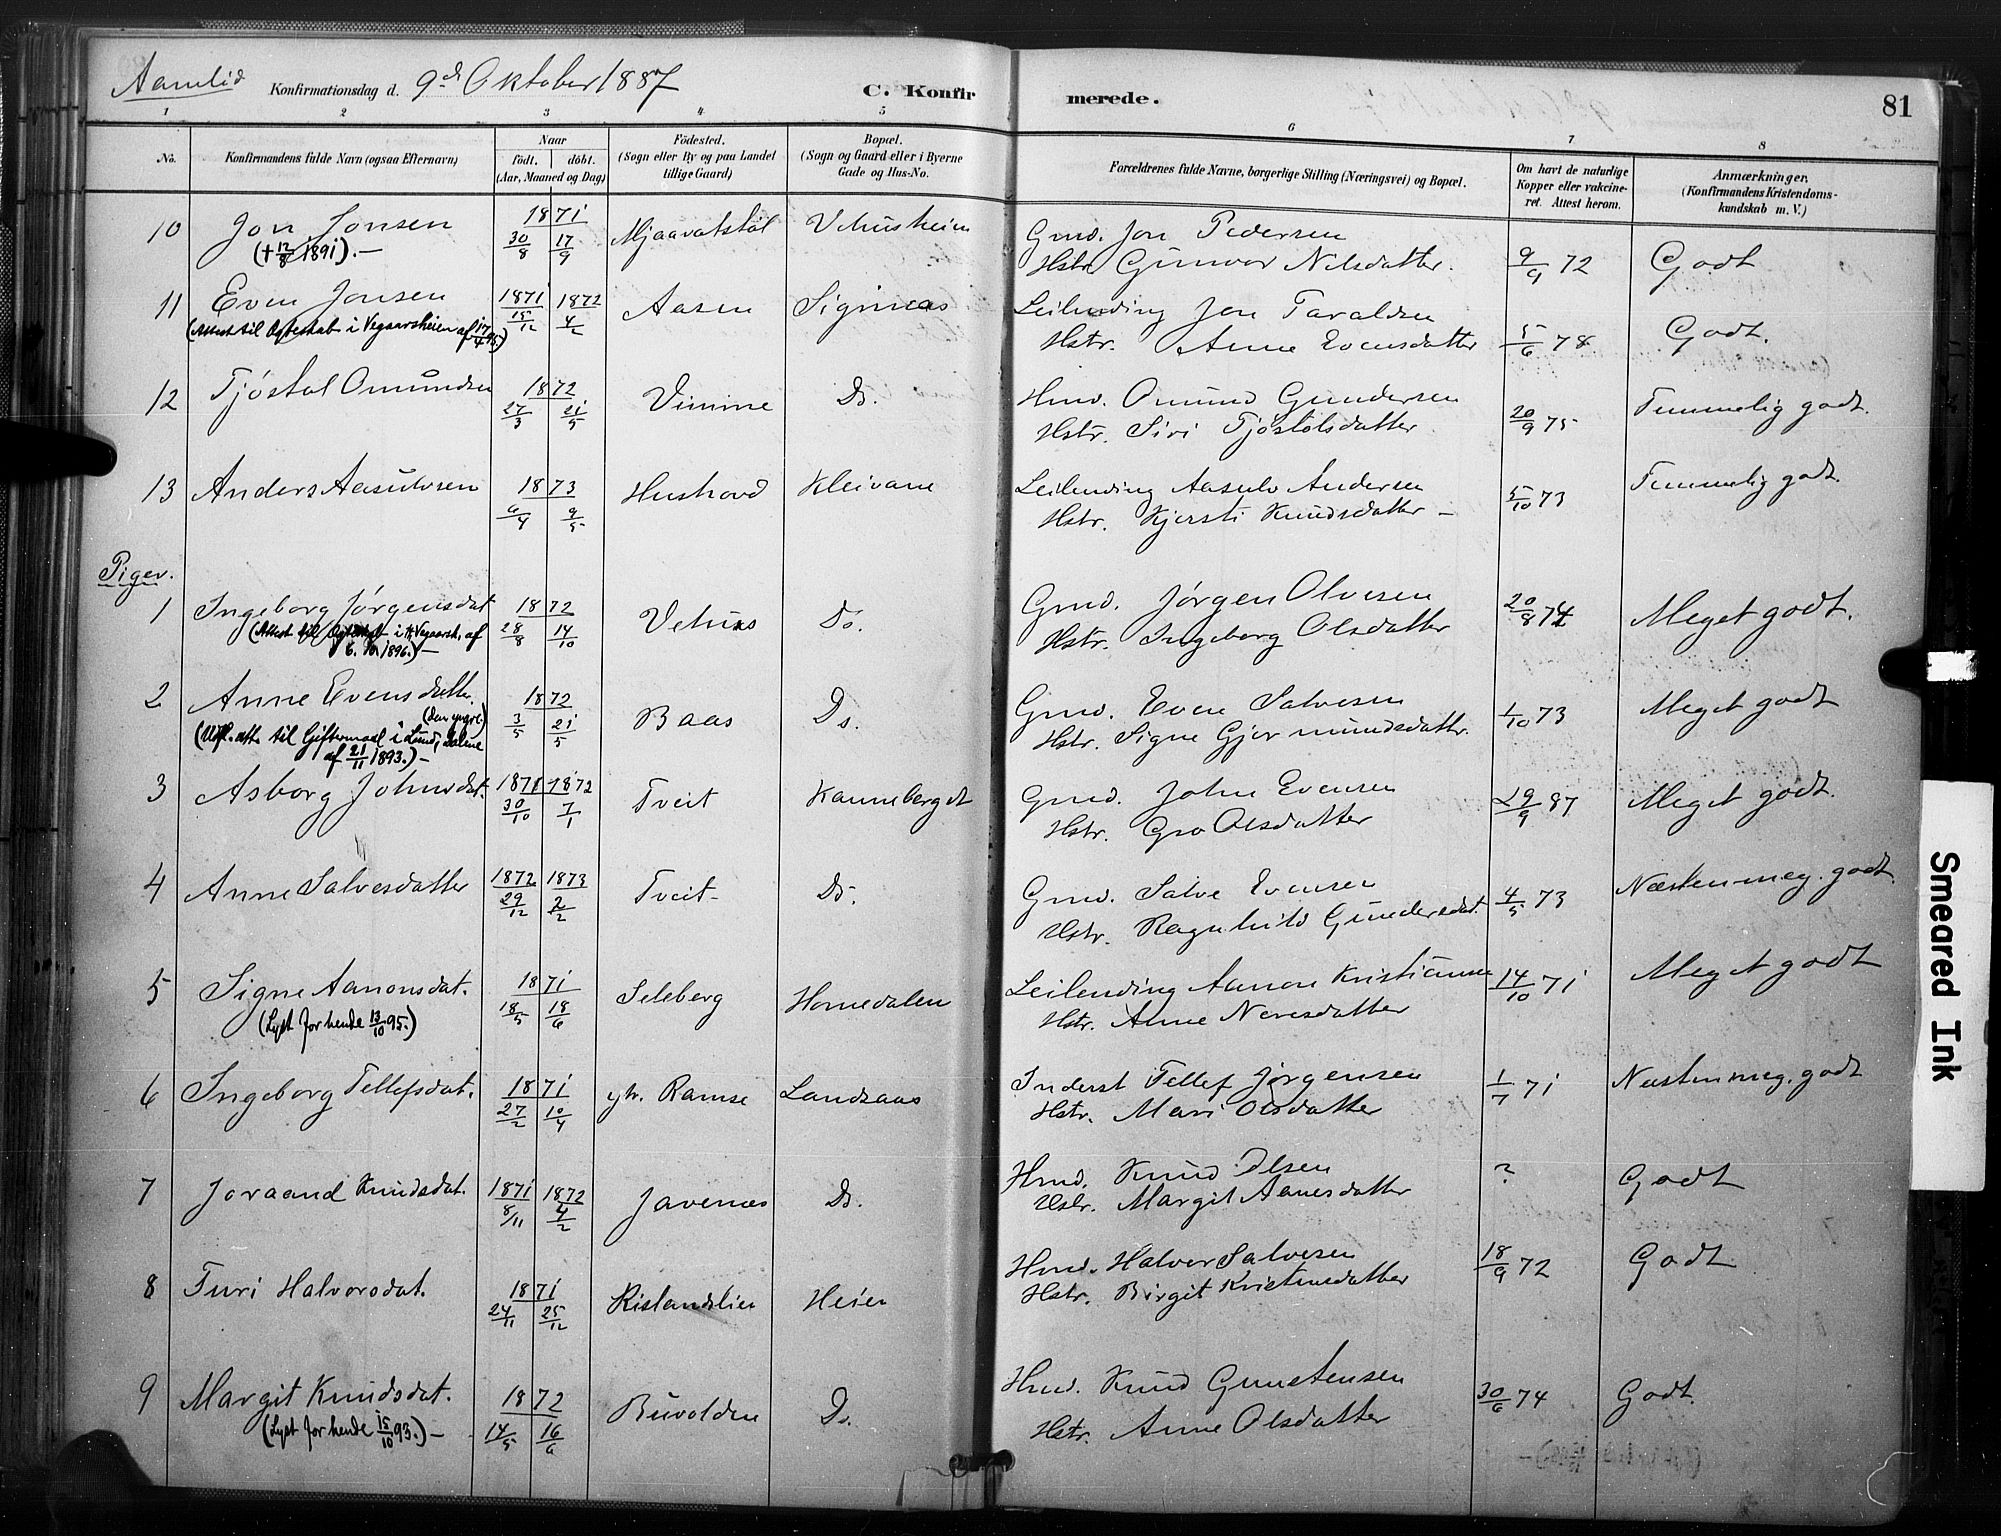 Aamlid Konfirmationsdag d. 9de Oktober 1887 C. Konfirmerede. 81
1 2 3 4 5 6 7 8
No. Konfirmandens fulde Navn (ogsaa Efternavn) Naar født. døbt. (Aar, Maaned og Dag) Fødested. (Sogn eller By og paa Landet tillige Gaard) Bopæl. (Sogn og Gaard eller i Byerne Gade og Hus-No. Forældrenes fulde Navne, borgerlige Stilling (Næringsvei) og Bopæl. Om havt de naturlige Kopper eller vakcineret. Attest herom. Anmærkninger. (Konfirmandens Kristendomskundskab m. V.)
10 Jon Jonsen 1871 30/8 17/9 Mjaavatstøl Vehusheien Gmd. Jon Pedersen 9/9 72 Godt
(† 12/8 1891).- Hstr. Gunvor Nilsdatter.
11 Even Jonsen 1871 15/12 1872 4/2 Aasen Signæs Leilending Jon Taraldsen 5/6 78 Godt.
(Attest til Ægteskab i Vegaarsheien af 17/4 95.) Hstr. Anne Evensdatter
12 Tjøstol Omundsen 1872 27/3 21/5 Vimme Ds. Hmd. Omund Gundersen 20/9 75 Temmelig godt.
Hstr. Siri Tjøstolsdatter
13 Anders Aasulvsen 1873 6/4 9/5 Hushovd Kleivane Leilending Aasulv Andersen 5/10 73 Temmelig godt.
Hstr. Kjersti Knudsdatter -
Piger.
1 Ingeborg Jørgensdat 1872 28/8 14/10 Vehus Do. Gmd. Jørgen Olvesen 20/8 74 Meget godt.
(Attest til Ægteskab i Vegaarsh. af 6. 1896.)- Hstr. Ingeborg Olsdatter
2 Anne Evensdatter. 1872 3/5 21/5 Baas Ds. Gmd. Even Salvesen 1/10 73 Meget godt
(den yngre.) Hstr. Signe Gjermundsdatter.
(Udfl. att. til Giftermaal i Lund, Dalene
af 21/11 1893.)-
3 Asborg Johnsdat. 1871 30/10 1872 7/1 Tveit Kanneberget Gmd. John Evensen 29/9 87 Meget godt.
Hstr. Gro Olsdatter
4 Anne Salvesdatter 1872 29/12 1873 2/2 Tveit Ds. Gmd. Salve Evensen 4/5 73 Næsten meg. godt.
Hstr. Ragnhild Gundersdat.
5 Signe Aanonsdat. 1871 18/5 18/6 Seleberg Hornedalen Leilending Aanon Kristiansen 14/10 71 Meget godt
(Lyst for hende 13/10 95.) Hstr. Anne Neresdatter
6 Ingeborg Tellefsdat. 1871 27/2 10/4 ytr. Ramse Landsaas Inderst Tellef Jørgensen 1/7 71 Næsten meg. godt
Hstr. Mari Olsdatter
7 Joraand Knudsdat. 1871 8/11 1872 4/2 Javenæs Ds. Hmd. Knud Olsen ? Godt
Hstr. Margit Aanesdatter
8 Turi Halvorsdat. 1871 24/11 25/12 Rislandslien Heien Hmd. Halvor Salvesen 18/9 72 Godt
Hstr. Birgit Kristensdatter
9 Margit Knudsdat. 1872 14/5 16/6 Buvolden Ds. Hmd. Knud Gunstensen 30/6 74 Godt.
(Lyst for hende 15/10 93.)- Hstr. Anne Olsdatter
Smeared Ink